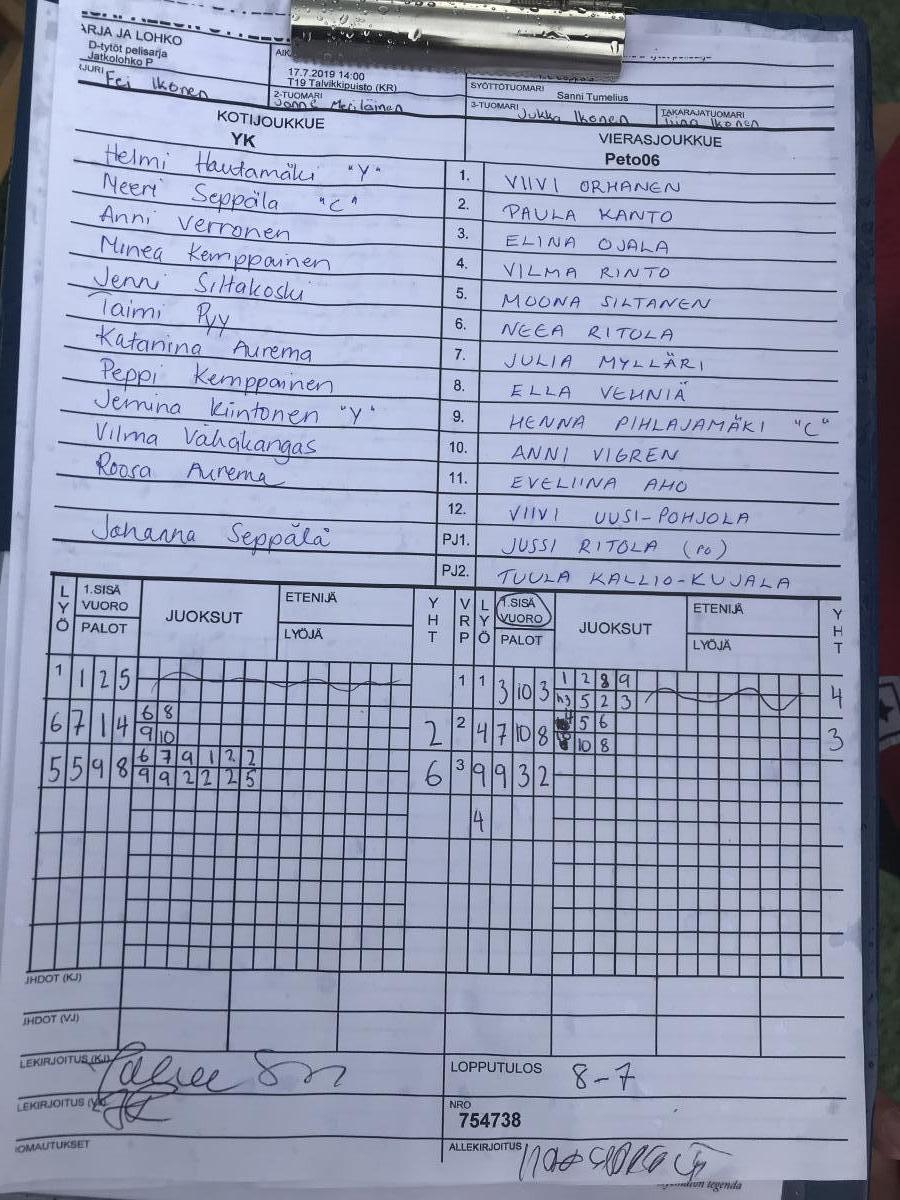 ARJA JA LOHKO
D-tytöt pelisarja
Jatkolohko P
17.7.2019 14:00
T19 Talvikkipuisto (KR)
SYÖTTÖTUOMARI
Sanni Tumelius
Fei Ikonen
2-TUOMARI
Janne Meriläinen
3-TUOMARI
Jukka Ikonen
TAKARAJATUOMARI
Tiina Ikonen
KOTIJOUKKUE
YK
VIERASJOUKKUE
Peto06
Helmi Hautamäki "Y" 1. VIIVI ORHANEN
Neeri Seppäla "C" 2. PAULA KANTO
Anni Verronen 3. ELINA OJALA
Minea Kemppainen 4. VILMA RINTO
Jenni Siltakoski 5. MOONA SILTANEN
Taimi Pyy 6. NEEA RITOLA
Katariina Aurema 7. JULIA MYLLÄRI
Peppi Kemppainen 8. ELLA VEHNIÄ
Jemina Kiintonen "Y" 9. HENNA PIHLAJAMÄKI "C"
Vilma Vähäkangas 10. ANNI VIGREN
Roosa Aurema 11. EVELIINA AHO
12. VIIVI UUSI-POHJOLA
Johanna Seppälä PJ1. JUSSI RITOLA (PO)
PJ2. TUULA KALLIO-KUJALA
LYÖ 1.SISÄ VUORO PALOT JUOKSUT ETENIJÄ LYÖJÄ YHT VRP LYÖ 1.SISÄ VUORO PALOT JUOKSUT ETENIJÄ LYÖJÄ YHT
1 1 2 5 1 1 3 10 3 1 2 8 9 4
5 2 3
6 7 1 4 6 8 2 2 4 7 10 8 4 5 6 3
9 10 10 8
5 5 9 8 6 7 9 1 2 2 6 3 9 9 3 2
9 9 2 2 2 5
4
JHDOT (KJ)
JHDOT (VJ)
LEKIRJOITUS (KJ)
LOPPUTULOS 8-7
LEKIRJOITUS
NRO
754738
OMAUTUKSET
ALLEKIRJOITUS
legenda